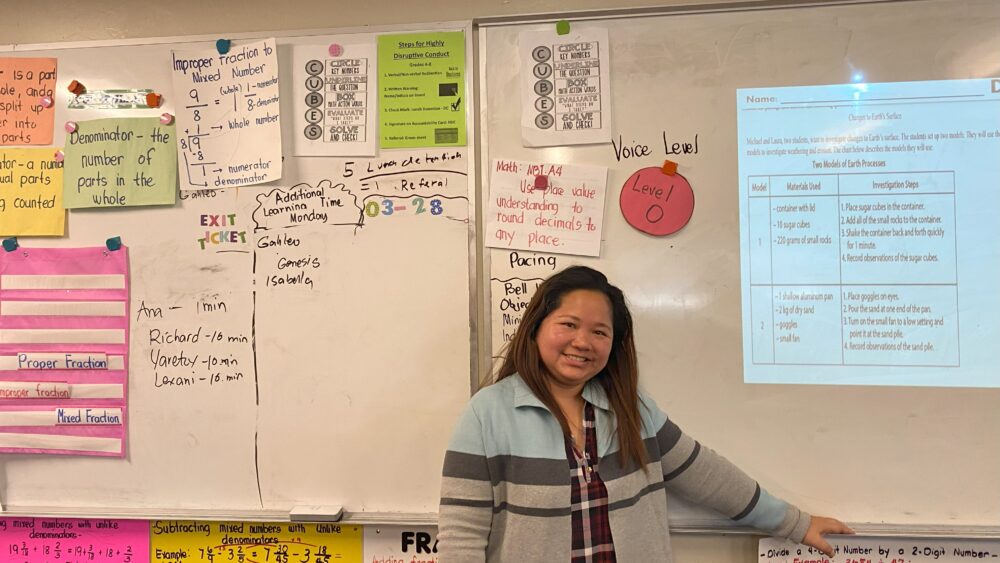 r is a part
ole, and a
split up
er into
parts
Denominator - the
number of
parts in the
whole
ator - a num
ual parts
ng counted
Improper Fraction to
Mixed Number
9
8
(whole)
1
1 - numerator
8 - denominator
1 → whole number
8 9
-8
1 → numerator
denominator
CUBES
CIRCLE
KEY NUMBERS
UNDERLINE
THE QUESTION
BOX
MATH ACTION WORDS
EVALUATE
SOLVE AND
CHECK
Steps for Highly
Disruptive Conduct
Grades 4-8
1. Verbal/Non-verbal Redirection
2. Written Warning:
5 Lunch detention
= 1 Referral
03-28
EXIT
TICKET
Additional
Learning Time
Monday
Galileo
Genesis
Isabella
Ana - 1 min
Richard - 16 min
Yaretzy - 10 min
Lexani - 16 min
Proper Fraction
Improper fraction
Mixed Fraction
CUBES
CIRCLE
KEY NUMBERS
UNDERLINE
THE QUESTION
BOX
MATH ACTION WORDS
EVALUATE
SOLVE AND
CHECK
Math: NBT.A4
Use place value
understanding to
round decimals to
any place.
Voice Level
Level
0
Pacing
Bell
Obje
Name:
Changes to Earth's Surface
Michael and Laura, two students, want to investigate changes to Earth's surface. The students set up two models. They will use the
models to investigate weathering and erosion. The chart below describes the models they will use.
Two Models of Earth Processes
Model Materials Used Investigation Steps
1
– container with lid
– 10 sugar cubes
– 220 grams of small rocks
1. Place sugar cubes in the container.
2. Add all of the small rocks to the container.
3. Shake the container back and forth quickly
for 1 minute.
4. Record observations of the sugar cubes.
2
– 1 shallow aluminum pan
– 2 kg of dry sand
– goggles
– small fan
1. Place goggles on eyes.
2. Pour the sand at one end of the pan.
3. Turn on the small fan to a low setting and
point it at the sand pile.
4. Record observations of the sand pile.
ng mixed numbers with unlike
denominators-
Subtracting mixed numbers with unlike
denominators
Example:
FRA
Adding fracti
- Divide a 4-Digit Number by a 2-Digit Number -